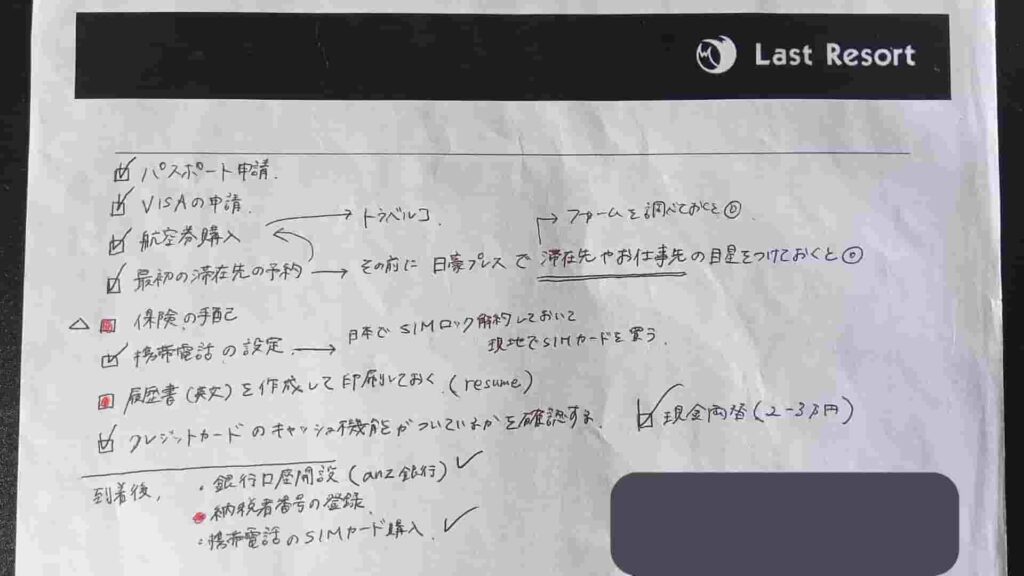 Last Resort
パスポート申請.
VISAの申請.
航空券購入 → トラベルコ
→ フォームを調べておくと◎.
最初の滞在先の予約 → その前に 日豪プレスで 滞在先やお仕事先の目星をつけておくと◎
△ 保険の手配
携帯電話の設定. → 日本でSIMロック解約しておいて
現地でSIMカードを買う.
履歴書(英文)を作成して印刷しておく.(resume)
クレジットカードのキャッシュ機能がついているかを確認する.
現金両替(2-3万円)
到着後,
・銀行口座開設(anz銀行)✓
・納税者番号の登録.
・携帯電話のSIMカード購入.✓